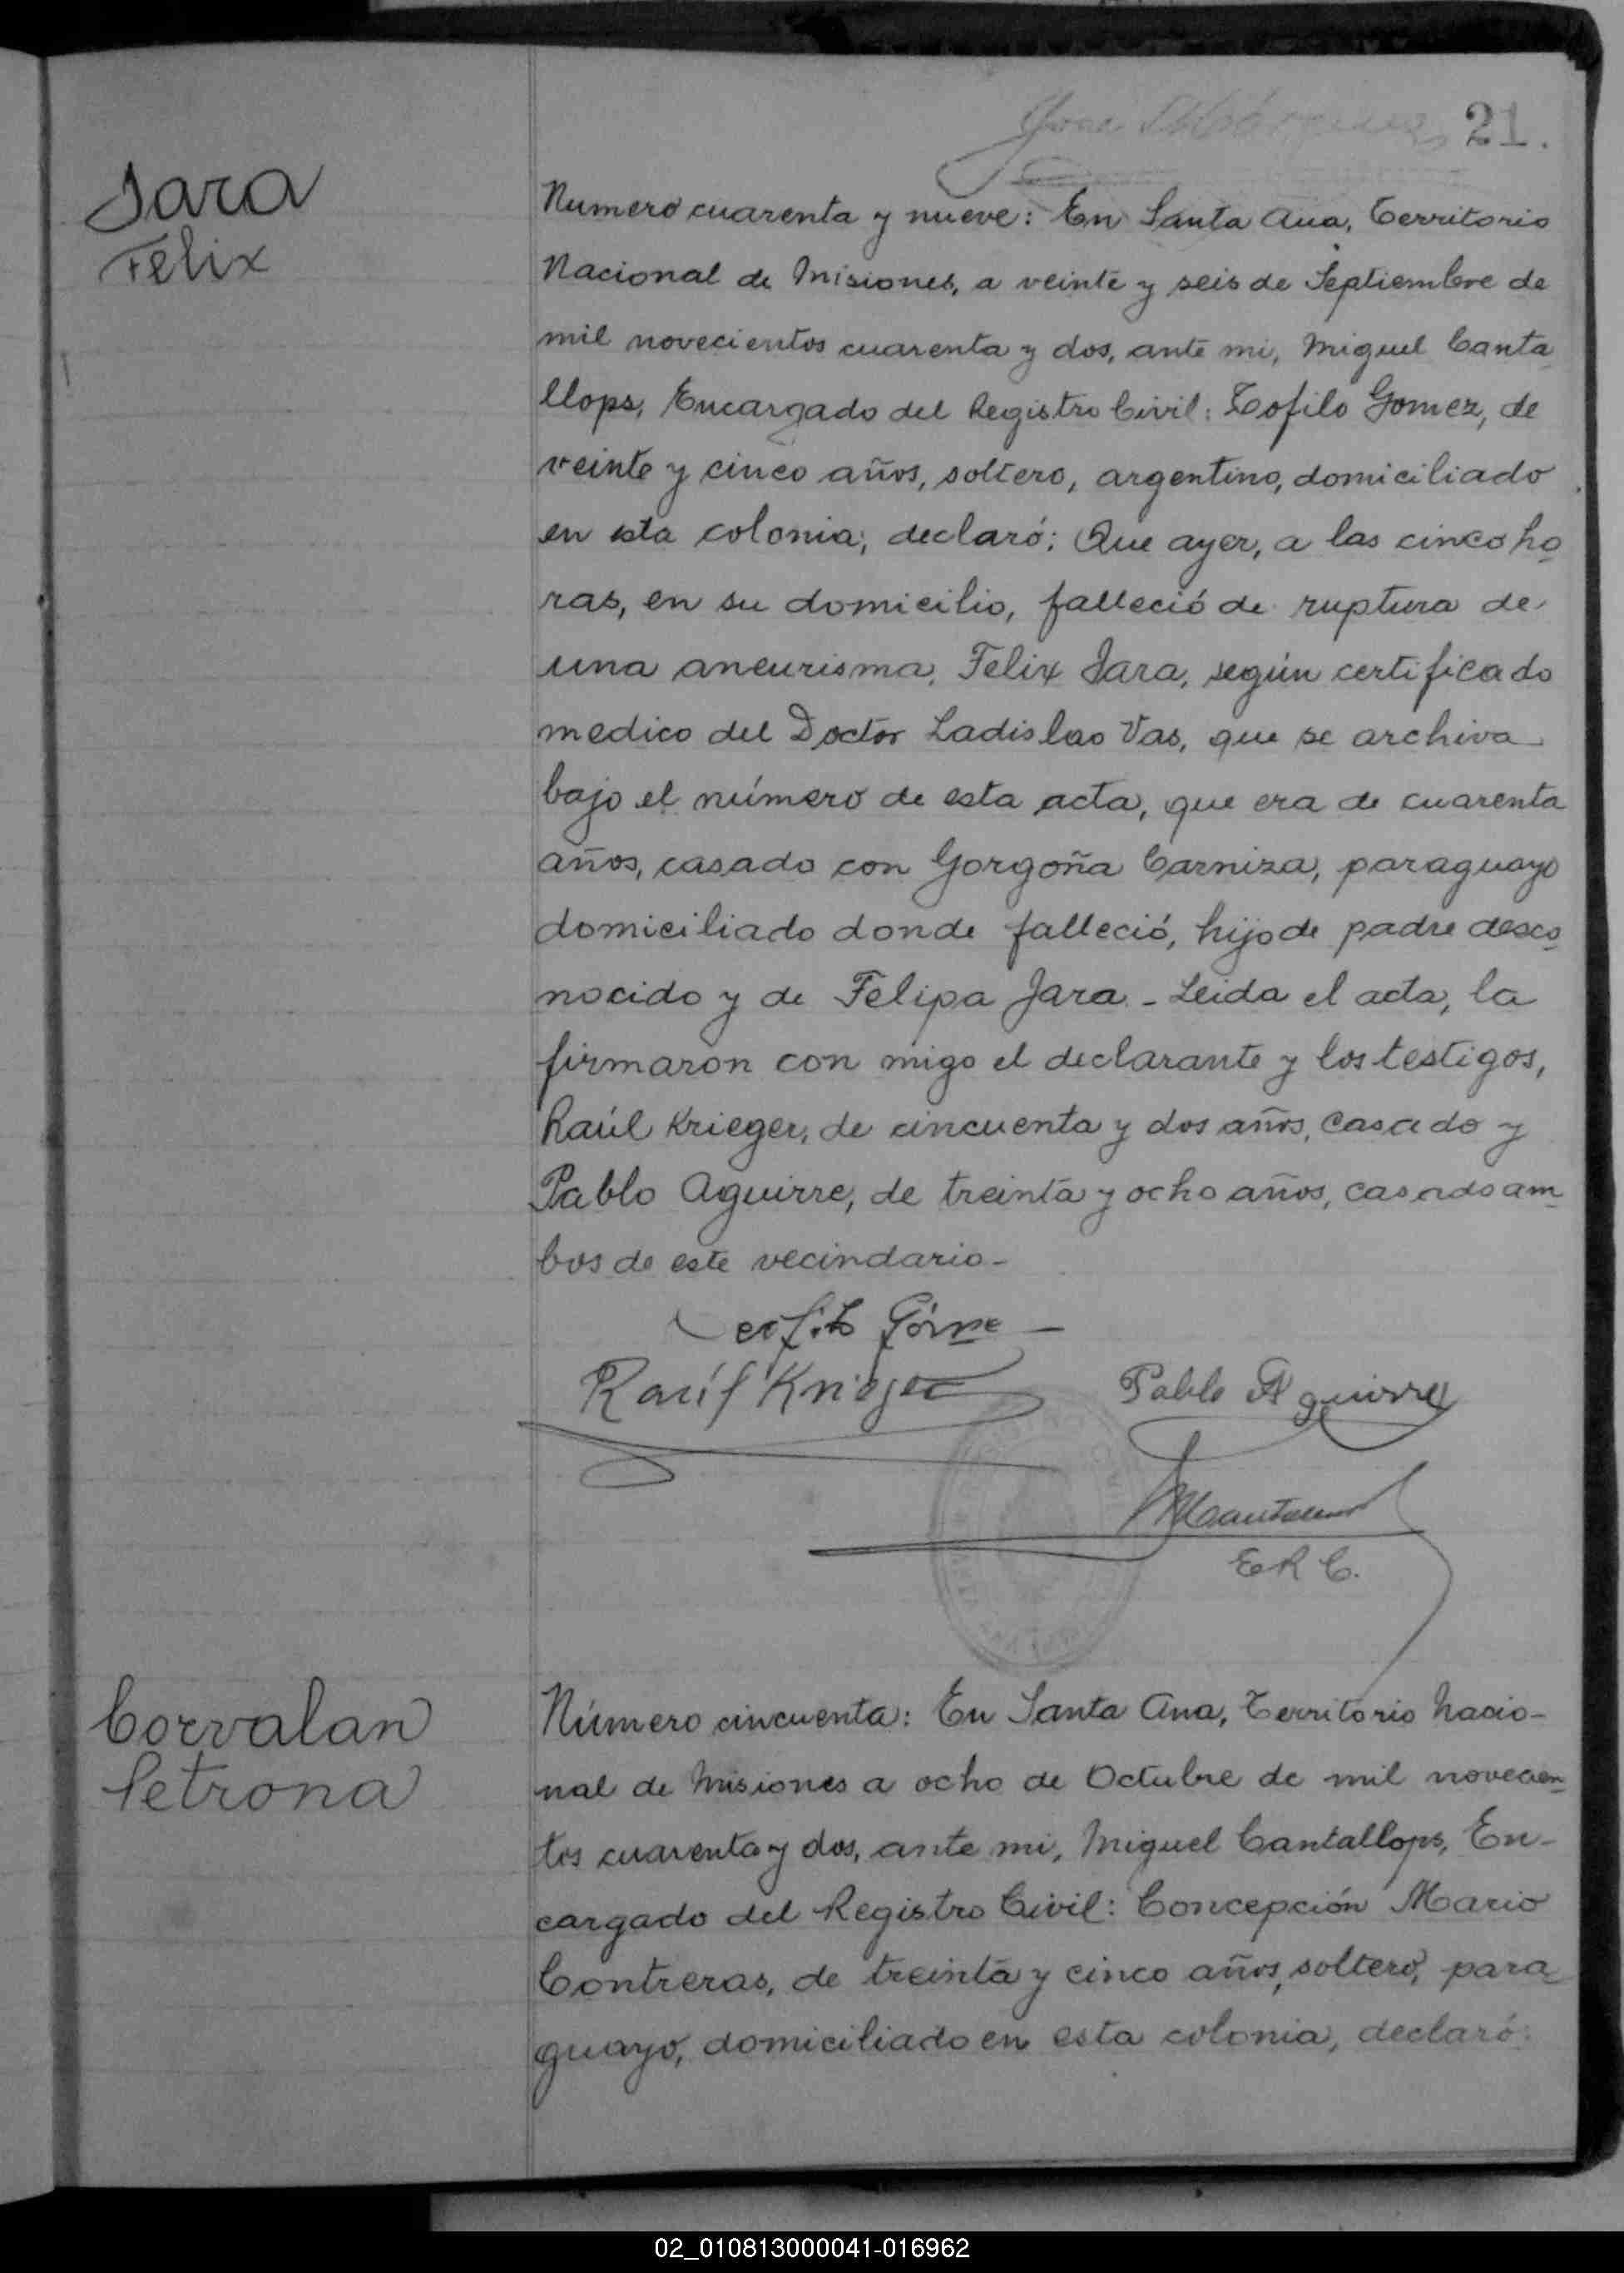 21.
Jara
Felix
Numero cuarenta y nueve: En Santa Ana, Territorio
Nacional de Misiones, a veinte y seis de Septiembre de
mil novecientos cuarenta y dos, ante mi, Miguel Canta
llops, Encargado del Registro Civil: Teofilo Gomez, de
veinte y cinco años, soltero, argentino, domiciliado
en esta colonia, declaró: Que ayer, a las cinco ho
ras, en su domicilio, falleció de ruptura de
una aneurisma, Felix Jara, según certificado
medico del Doctor Ladislao Vas, que se archiva
bajo el número de esta acta, que era de cuarenta
años, casado con Gorgoña Carniza, paraguayo
domiciliado donde falleció, hijo de padre desco
nocido y de Felipa Jara - Leida el acta, la
firmaron con migo el declarante y los testigos,
Raúl Krieger, de cincuenta y dos años, casado y
Pablo Aguirre, de treinta y ocho años, casado am
bos de este vecindario -
Raúl Krieger
Pablo Aguirre
E R C.
Corvalan
Petrona
Número cincuenta: En Santa Ana, Territorio Nacio-
nal de Misiones a ocho de Octubre de mil novecien
tos cuarenta y dos, ante mi, Miguel Cantallops, En-
cargado del Registro Civil: Concepción Mario
Contreras, de treinta y cinco años, soltero, para
guayo, domiciliado en esta colonia, declaró:
02_010813000041-016962